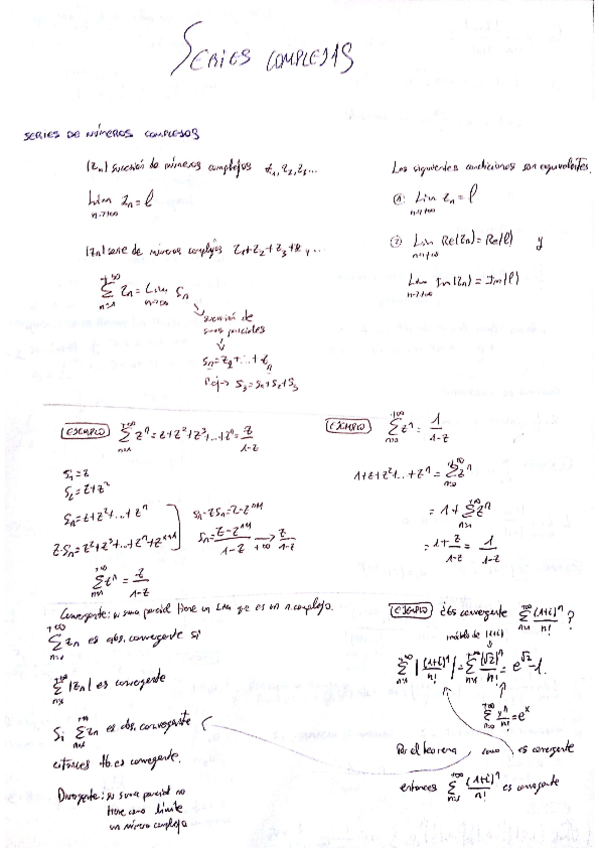 SERIES COMPLEJAS
SERIES DE NÚMEROS COMPLEJOS
{Zn} sucesión de números complejos z1, z2, z3...
Lim Zn = l
n→+∞
{Zn} serie de números complejos z1+z2+z3+...
+∞
Σ Zn = Lim Sn
n=1 n→+∞
sucesión de
sumas parciales
Las siguientes condiciones son equivalentes
① Lim Zn = l
n→+∞
② Lim Re(Zn) = Re(l) y
n→+∞
Lim Im(Zn) = Im(l)
n→+∞
EJEMPLO Σ z^n = z+z²+z³+...+z^n = z/(1-z)
S1 = z
S2 = z+z²
Sn = z+z²+...+z^n
z·Sn = z²+z³+...+z^n+z^(n+1)
Sn-zSn = z-z^(n+1)
Sn = (z-z^(n+1))/(1-z) → z/(1-z)
+∞
Σ z^n = z/(1-z)
n=1
EJEMPLO Σ z^n = 1/(1-z)
1+z+z²+...+z^n = Σ z^n
= 1 + Σ z^n
= 1 + z/(1-z) = 1/(1-z)
Convergente: su suma parcial tiene un Lim que es un n. complejo.
Σ Zn es abs. convergente si
Σ |Zn| es convergente
Si Σ Zn es abs. convergente
entonces tb. es convergente.
Divergente: su suma parcial no
tiene como límite
un número complejo
EJEMPLO ¿es convergente Σ (1+i)^n/n! ?
módulo de |1+i|
Σ |(1+i)^n/n!| = Σ (√2)^n/n! = e^√2 - 1
= e^x
Por el teorema, como es convergente
entonces Σ (1+i)^n/n! es convergente